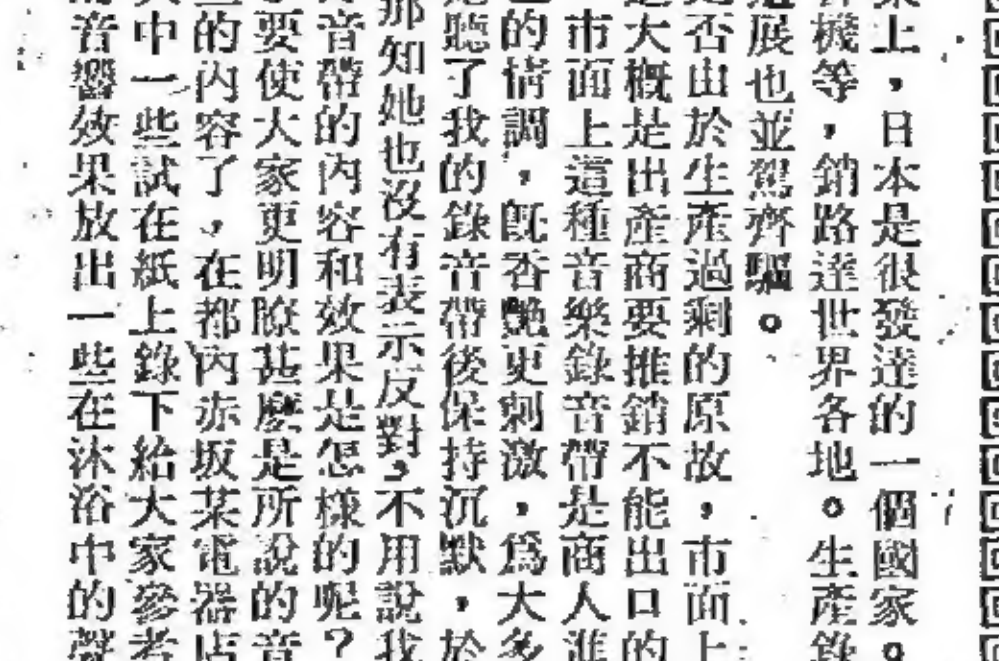 上，日本是很發達的一個國家。
機等，銷路達世界各地。生產錄
展也並駕齊驅。
否由於生產過剩的原故，市面上
大概是出產商要推銷不能出口的
市面上這種音樂錄音帶是商人進
的情調，既香艷更刺激，爲大多
聽了我的錄音帶後保持沉默，於
那知她也沒有表示反對，不用說我
音帶的內容和效果是怎樣的呢？
要使大家更明瞭甚麼是所說的音
的內容了，在都內赤坂某電器店
中一些試在紙上錄下給大家參考
音響效果放出一些在沐浴中的聲